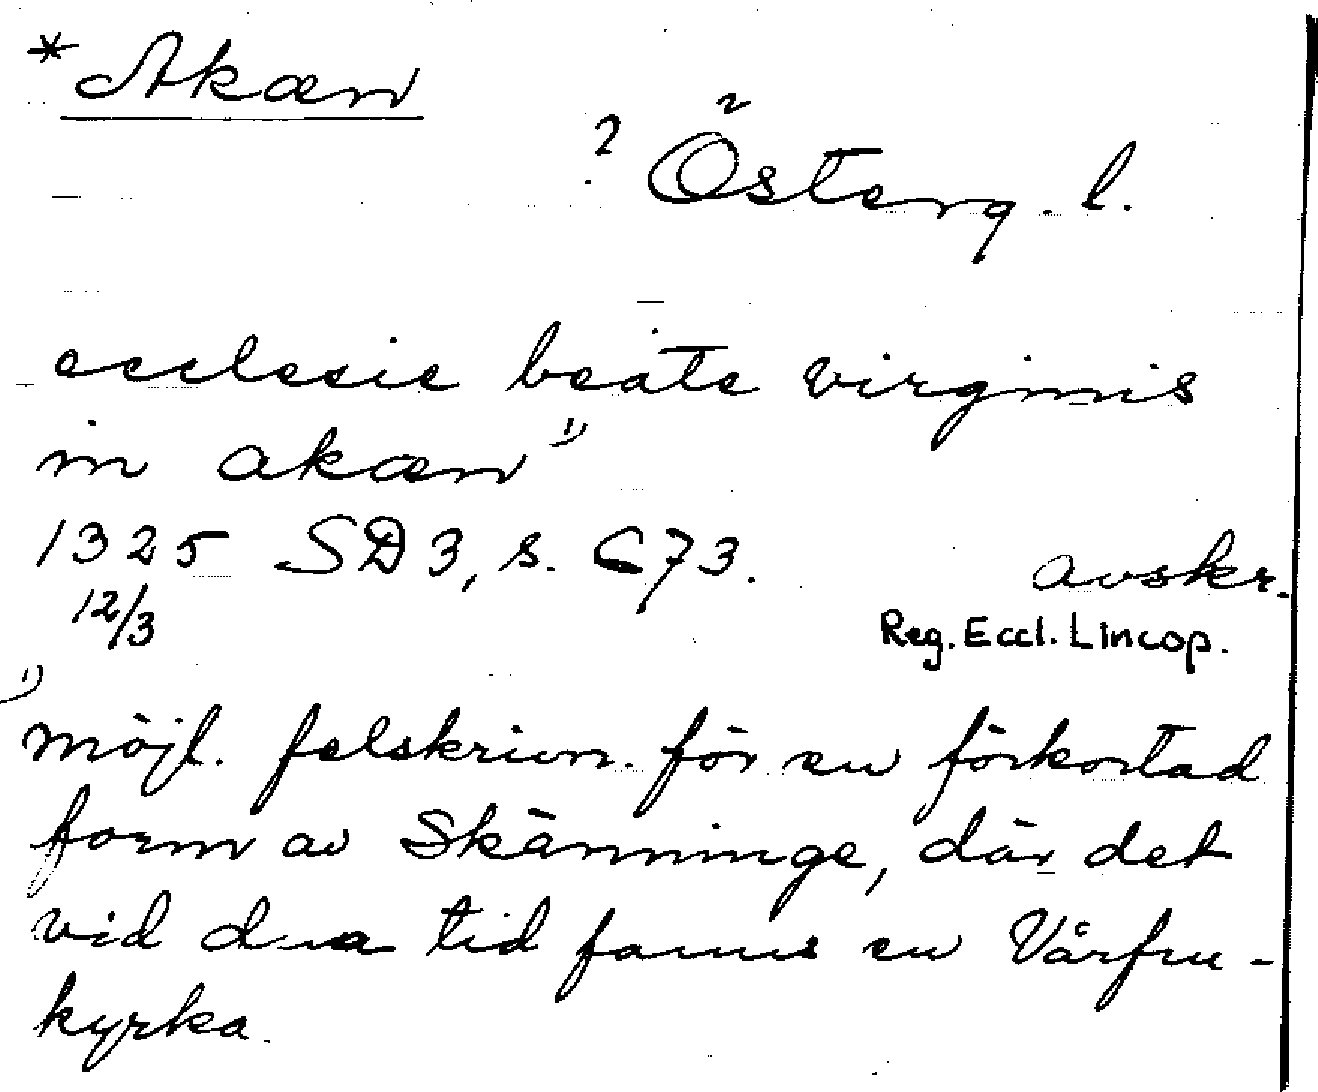 *Akæn
? Österg. l.
ecclesie beate virginis
in akæn 1)
1325 SD 3, s. 673. avskr.
12/3 Reg. Eccl. Lincop.
1)
möjl. felskrivn. för en förkortad
form av Skänninge, där det
vid dna tid fanns en Vårfru-
kyrka.